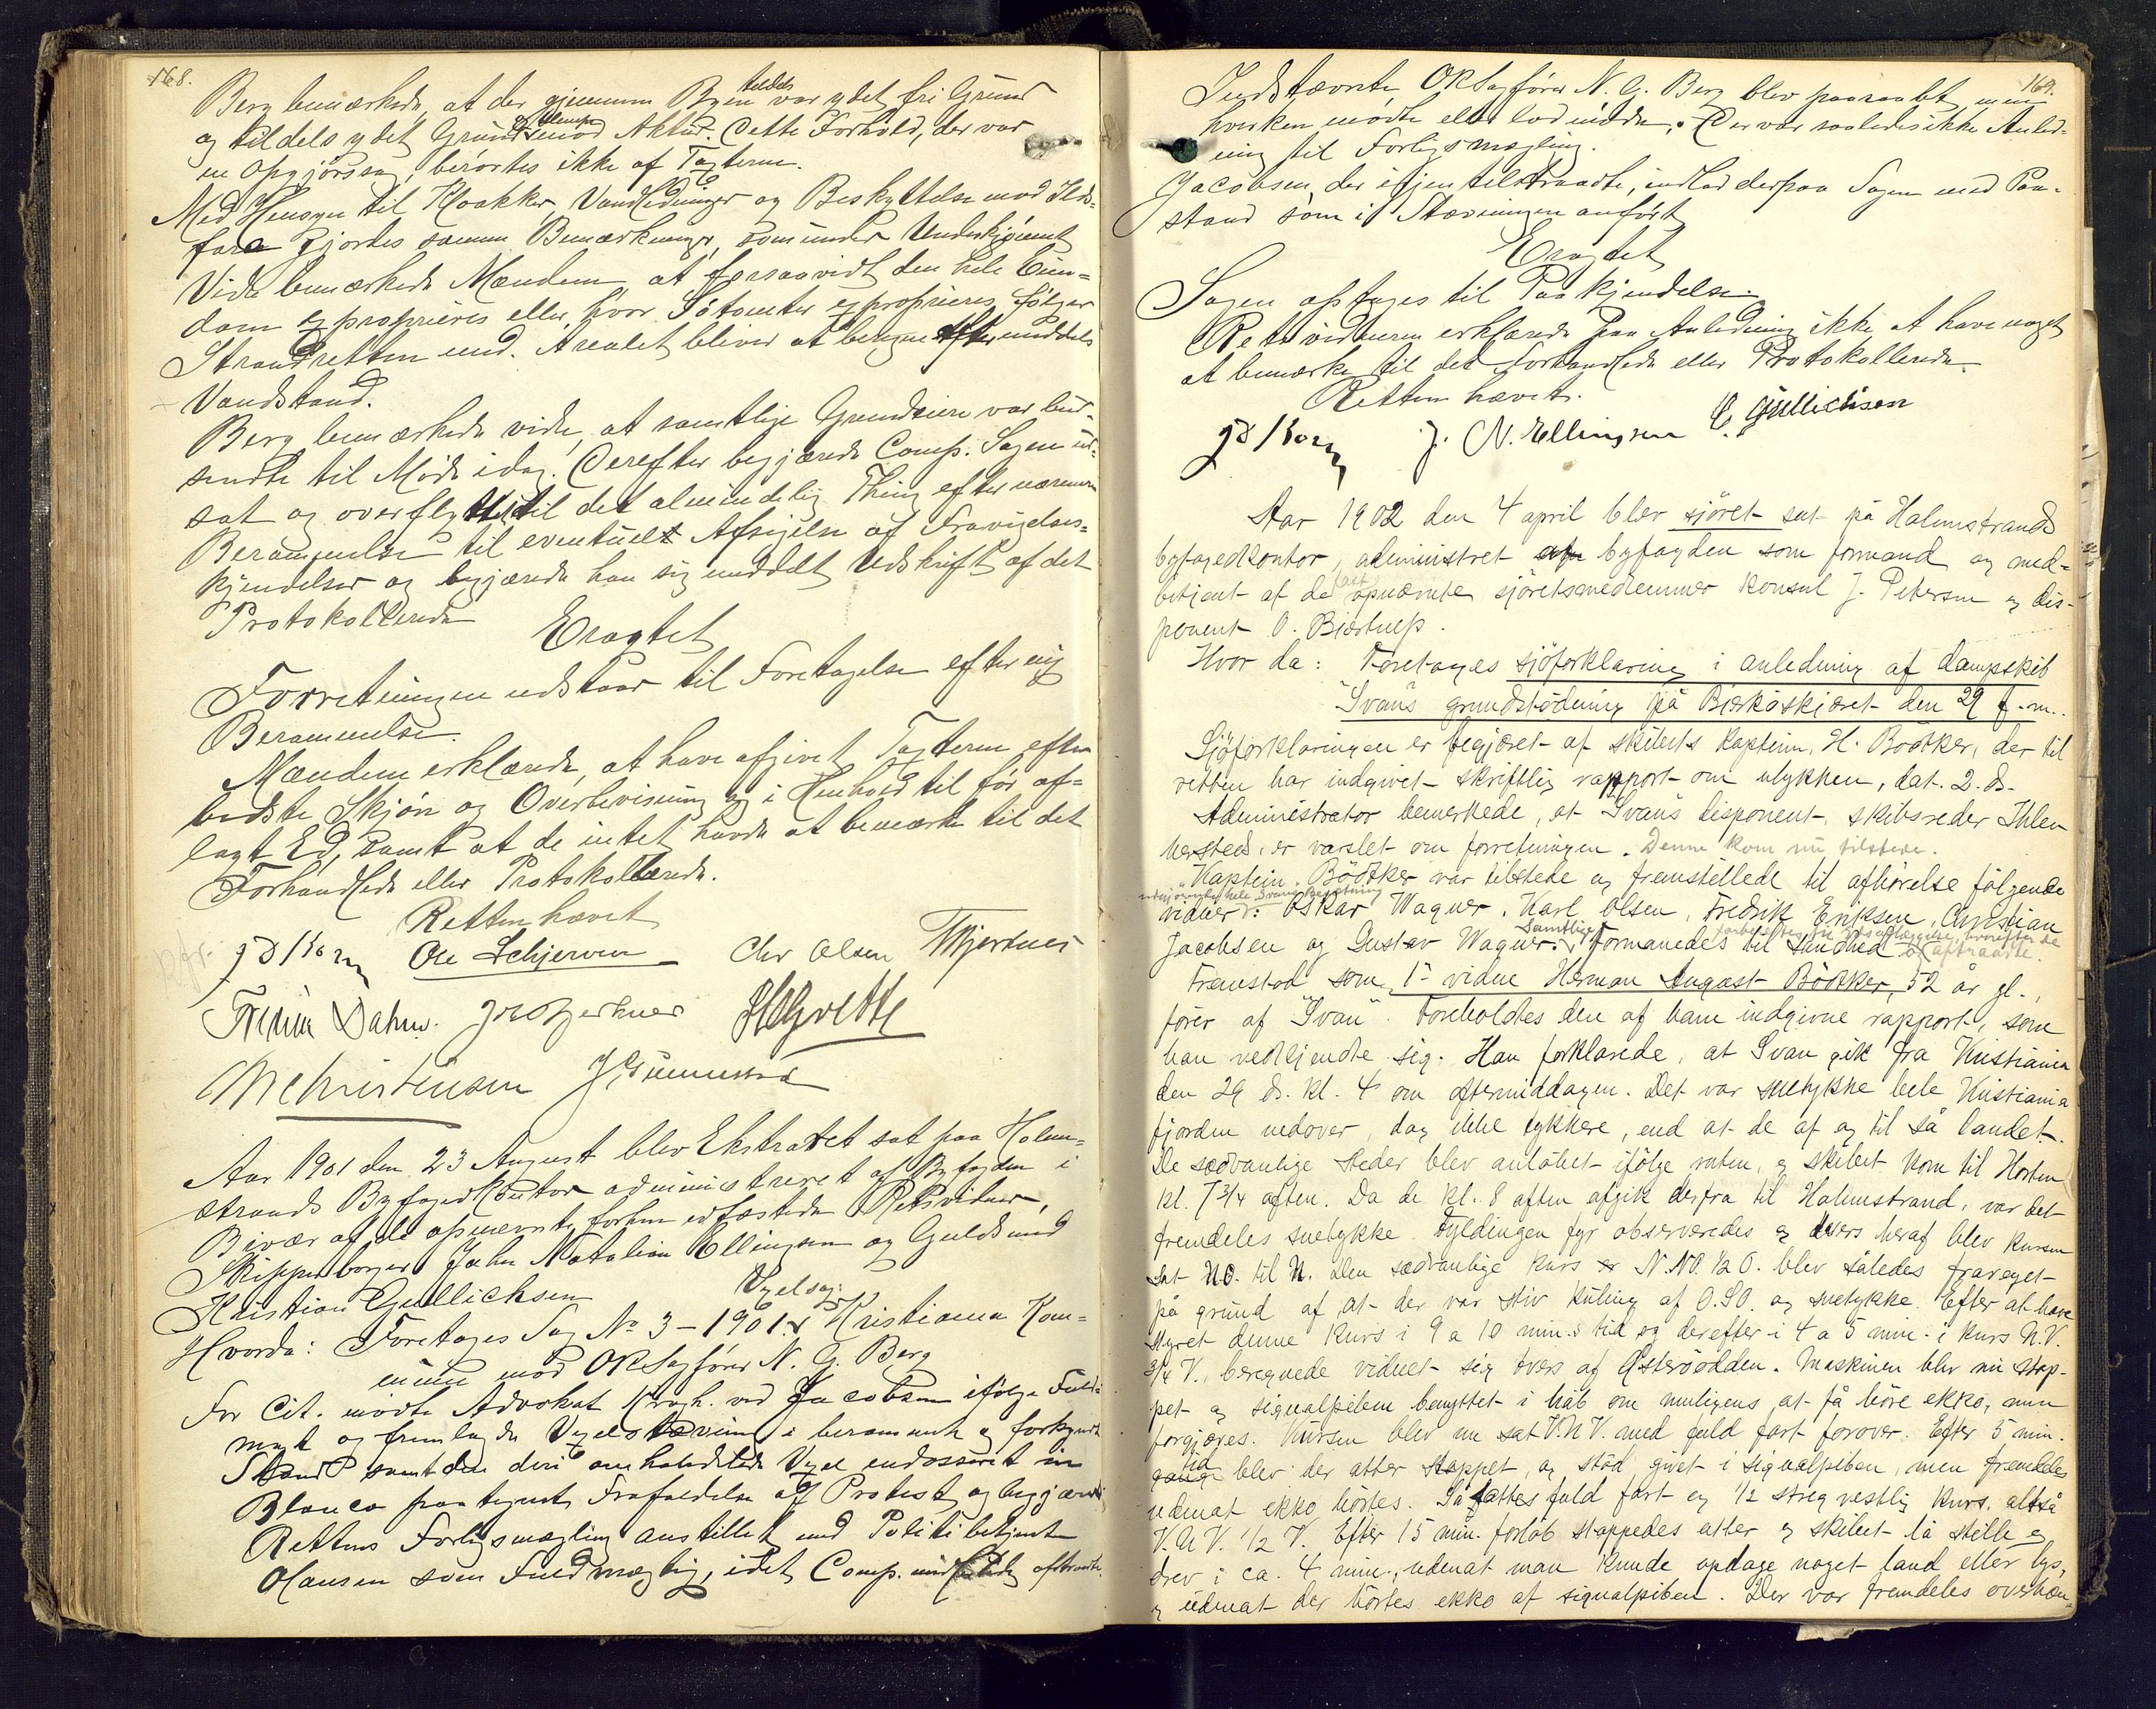 168.
Berg bemærkede, at der gjennem Byen tildels var ydet fri Grund
og tildels ydet Grund mod Aktier. Dette Forhold, der var
en Opgjørssag, berørtes ikke af Taxterne.
Med Hensyn til Kloakker, Vandledninger og Beskyttelse mod Ilds-
fare gjordes samme Bemærkninger, som under Underskjønnet
Videre bemærkede Mændene, at forsaavidt den hele Eien-
dom exproprieres eller, hvor Søtomter exproprieres, følger
Strandretten med. Arealet bliver at beregne efter middels
Vandstand.
Berg bemærkede videre, at samtlige Grundeiere var bud-
sendte til Møde idag. Derefter begjærede Comp. Sagen ud-
sat og overflyttet til det almindelige Thing efter nærmere
Berammelse til eventuelt Afsigelse af Fravigelses-
kjendelser og begjærede han sig meddelt Udskrift af det
Protokollerede
Eragtet
Forretningen udstaar til Foretagelse efter ny
Berammelse.
Mændene erklærede, at have afgivet Taxterne efter
bedste Skjøn og Overbevisning og i Henhold til før af-
lagt Ed, samt at de intet havde at bemærke til det
Forhandlede eller Protokollerede.
Retten hævet
Ole Schjerven Chr Olsen
Fredrik Dahm.
M Christensen
Aar 1901 den 23 August blev Ekstraret sat paa Holm-
strands Byfogedkontor administreret af Byfogden i
Bivær af de opnævnte, forhen edfæstede Retsvidner,
Skipperborger Johan Natalius Ellingsen og Guldsmed
Kristian Gullichsen
Hvorda: Foretages Vexelsag Sag No 3 – 1901. Kristiania Kom-
mune mod ORSagfører N. G. Berg
For Cit. mødte Advokat Krogh. ved Jacobsen ifølge Fuld-
magt og fremlagde Vexelstævning i berammet og forkyndt
Stand samt den deri omhandlede Vexel endosseret in
Blanco paategnet Frafaldelse af Protest og begjærede
Rettens Forligsmægling anstillet med Politibetjent
Hansen som Fuldmægtig, idet Comp. midlertidig aftraadte.
169.
Indstævnte, ORSagfører N. G. Berg blev paaraabt, men
hverken mødte eller lod møde. Der var saaledes ikke Anled-
ning til Forligsmægling.
Jacobsen, der igjen tilstraadte, indlod derpaa Sagen med Paa-
stand som i Stævningen anført
Eragtet
Sagen optages til Paakjendelse.
Retsvidnerne erklærede paa Anledning ikke at have noget
at bemærke til det Forhandlede eller Protokollerede
Retten hævet.
J. N. Ellingsen C. Gullichsen
Aar 1902 den 4 april blev sjöret sat på Holmstrands
byfogedkontor, administret af byfogden som formand og med-
betjent af de fast opnævnte sjöretsmedlemmer konsul J. Petersen og dis-
ponent O. Biørtuft.
Hvor da: Foretages sjöforklaring i anledning af dampskib
"Svan"s grundstödning på Bierköskjæret den 29 f.m..
Sjöforklaringen er begjæret af skibets kaptein, H. Bödtker, der til
retten har indgivet skriftlig rapport om ulykken, dat. 2. ds.
Administrator bemerkede, at "Svan"s disponent, skibsreder Ihlen
hersteds, er varslet om forretningen. Denne kom nu tilstede.
Kaptein Bödtker var tilstede og fremstillede til afhörelse fölgende
udgjörende hele Svans Besetning
vidner: Oskar Wagner, Karl Olsen, Fredrik Eriksen, Christian
Jacobsen og Gustav Wagner. Samtlige formanedes til sandhed og aftraadte.
Fremstod som 1ste vidne Herman August Bödtker, 52 år gl.,
förer af "Svan". Foreholdtes den af ham indgivne rapport, som
han vedkjendte sig. Han forklarede, at Svan gik fra Kristiania
den 29 ds. kl. 4 om eftermiddagen. Det var snetykke hele Kristiania
fjorden nedover, dog ikke tykkere, end at de af og til så landet.
De sædvanlige steder blev anlöbet ifölge ruten, og skibet kom til Horten
kl. 7 3/4 aften. Da de kl. 8 aften afgik derfra til Holmstrand, var det
fremdeles snetykke. Fyldingen fyr observeredes og tvers heraf blev kursen
sat NO. til N. Den sædvanlige kurs N.NO. 1/2 O. blev således fraveget
på grund af, at der var stiv kuling af O.SO. og snetykke. Efter at have
styret denne kurs i 9 a 10 min.s tid og derefter i 4 a 5 min. i kurs N.V.
3/4 V., beregnede vidnet sig tvers af Österöodden. Maskinen blev nu stop-
pet og signalpiben benyttet i håb om muligens at få höre ekko, men
forgjæves. Kursen blev nu sat V.N.V. med fuld fart forover. Efter 5 min.
tid blev der atter stoppet, og stöd givet i signalpiben, men fremdeles
udenat ekko hörtes. Så sattes fuld fart og 1/2 streg vestlig kurs, altså
V.N.V. 1/2 V. Efter 15 min. forlöb stoppedes atter og skibet lå stille og
drev i ca. 4 min., udenat man kunde opdage noget land eller lys,
og udenat der hörtes ekko af signalpiben. Der var fremdeles overhæn-